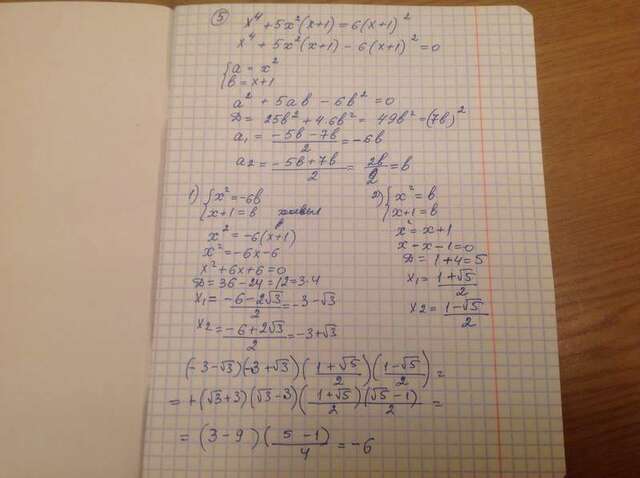 ⑤ x⁴ + 5x²(x+1) = 6(x+1)²
x⁴ + 5x²(x+1) - 6(x+1)² = 0
{ a = x²
{ b = x+1
a² + 5ab - 6b² = 0
D = 25b² + 4·6b² = 49b² = (7b)²
a₁ = (-5b-7b)/2 = -6b
a₂ = (-5b+7b)/2 = 2b/2 = b
1) { x² = -6b
{ x+1 = b
x² = -6(x+1)
x² = -6x-6
x² + 6x + 6 = 0
D = 36-24 = 12 = 3·4
x₁ = (-6-2√3)/2 = -3-√3
x₂ = (-6+2√3)/2 = -3+√3
2) { x² = b
{ x+1 = b
x² = x+1
x-x-1=0
D = 1+4 = 5
x₁ = (1+√5)/2
x₂ = (1-√5)/2
(-3-√3)(-3+√3)((1+√5)/2)((1-√5)/2) =
= +(√3+3)(√3-3)((1+√5)/2)((√5-1)/2) =
= (3-9)((5-1)/4) = -6